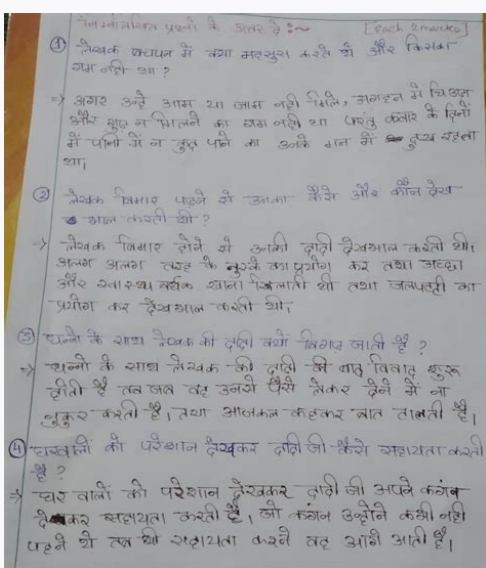 निम्नलिखित प्रश्नों के उत्तर दें :~ [Each 2 marks]
① लेखक बचपन में क्या महसूस करते थे और किसका
गम नहीं था ?
⇒ अगर उन्हें आम या जाम नहीं मिले, अगहन में चिउड़ा
और गुड़ न मिलने का गम नहीं था परंतु क्वार के दिनों
में पानी में न कुद पाने का उनके मन में दुख रहता
था।
② लेखक बिमार पड़ने से उनका कैसे और कौन देख
भाल करती थी ?
⇒ लेखक बिमार होने से उनकी दादी देखभाल करती थी।
अलग अलग तरह के नुस्के का प्रयोग कर तथा अच्छा
और स्वास्थ्य वर्धक खाना खिलाती थी तथा जलपट्टी का
प्रयोग कर देखभाल करती थी।
③ धन्नो के साथ लेखक की दादी क्यों बिगड़ जाती है ?
⇒ धन्नो के साथ लेखक की दादी की वाद विवाद शुरू
होती है तब जब वह उनसे पैसे लेकर देने में ना
नुकुर करती है। तथा आजकल कहकर बात टालती है।
④ घरवालों को परेशान देखकर दादी जी कैसे सहायता करती
है ?
⇒ घर वालों को परेशान देखकर दादी जी अपने कंगन
देकर सहायता करती है। जो कंगन उन्होंने कभी नही
पहने थे तब भी सहायता करने वह आगे आती है।